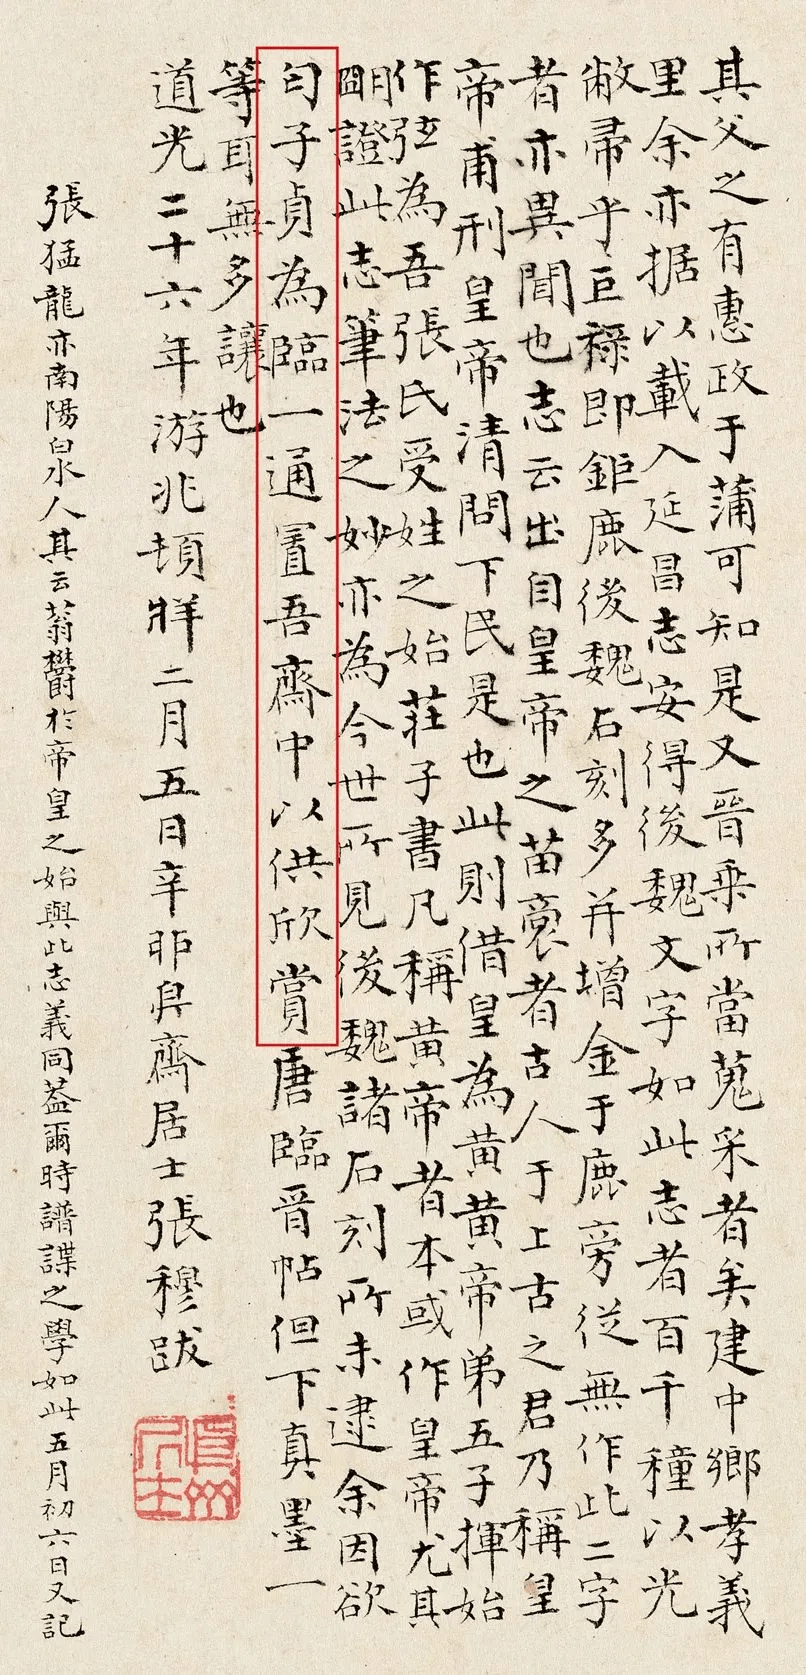 其父之有惠政于蒲可知是又晉乗所當蒐采者矣建中鄉孝義
里余亦据以載入延昌志安得後魏文字如此志者百千種以光
敝帚乎巨祿即鉅鹿後魏石刻多并增金于鹿旁從無作此二字
者亦異聞也志云出自皇帝之苗裔者古人于上古之君乃稱皇
帝甫刑皇帝清問下民是也此則借皇為黄黄帝弟五子揮始
作弦為吾張氏受姓之始莊子書凡稱黄帝者本或作皇帝尤其
朙證此志筆法之妙亦為今世所見後魏諸石刻所未逮余因欲
匄子貞為臨一通置吾齋中以供欣賞唐臨晉帖但下真墨一
等耳無多讓也
道光二十六年游兆頓牂二月五日辛卯㒷齋居士張穆跋
張猛龍亦南陽白水人其云蓊鬱於帝皇之始與此志義同葢爾時譜諜之學如此五月初六日又記